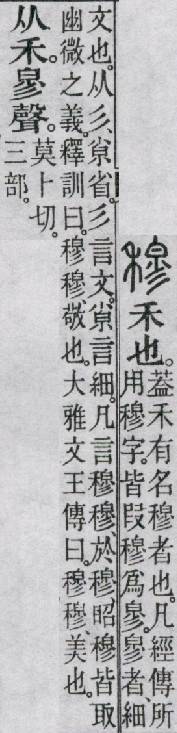 穆 禾也。葢禾有名穆者也。凡經傳所
用穆字。皆叚穆爲㣎。㣎者、細
文也。从彡、𡭴省。彡言文。𡭴言細。凡言穆穆、於穆、昭穆皆取
幽微之義。釋訓曰。穆穆敬也。大雅文王傳曰。穆穆、美也。
从禾㣎聲。莫卜切。
三部。